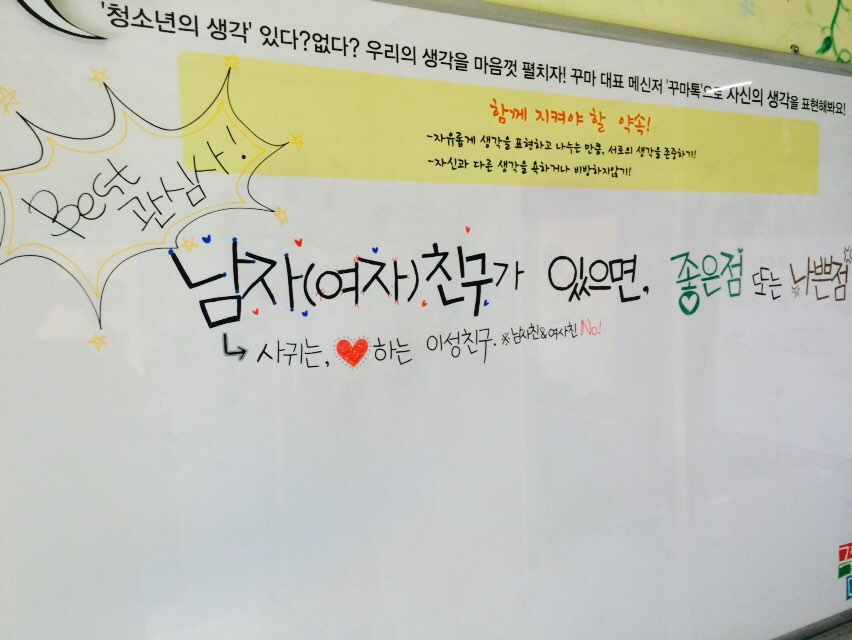 '청소년의 생각' 있다?없다? 우리의 생각을 마음껏 펼치자! 꾸마 대표 메신저 '꾸마톡'으로 자신의 생각을 표현해봐요!
함께 지켜야 할 약속!
-자유롭게 생각을 표현하고 나누는 만큼, 서로의 생각을 존중하기!
-자신과 다른 생각을 욕하거나 비방하지않기!
Best
관심사!
남자(여자)친구가 있으면, 좋은점 또는 나쁜점
↳ 사귀는, ♥하는 이성친구. ※남사친&여사친 No!